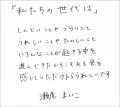 「私たちの世代は」
しんどいことやつらいこと
うれしいことやたのしいこと
いろんなことが起きる中を
進んできたからこそある光を
感じていただけたらうれしいです
瀬尾 まいこ